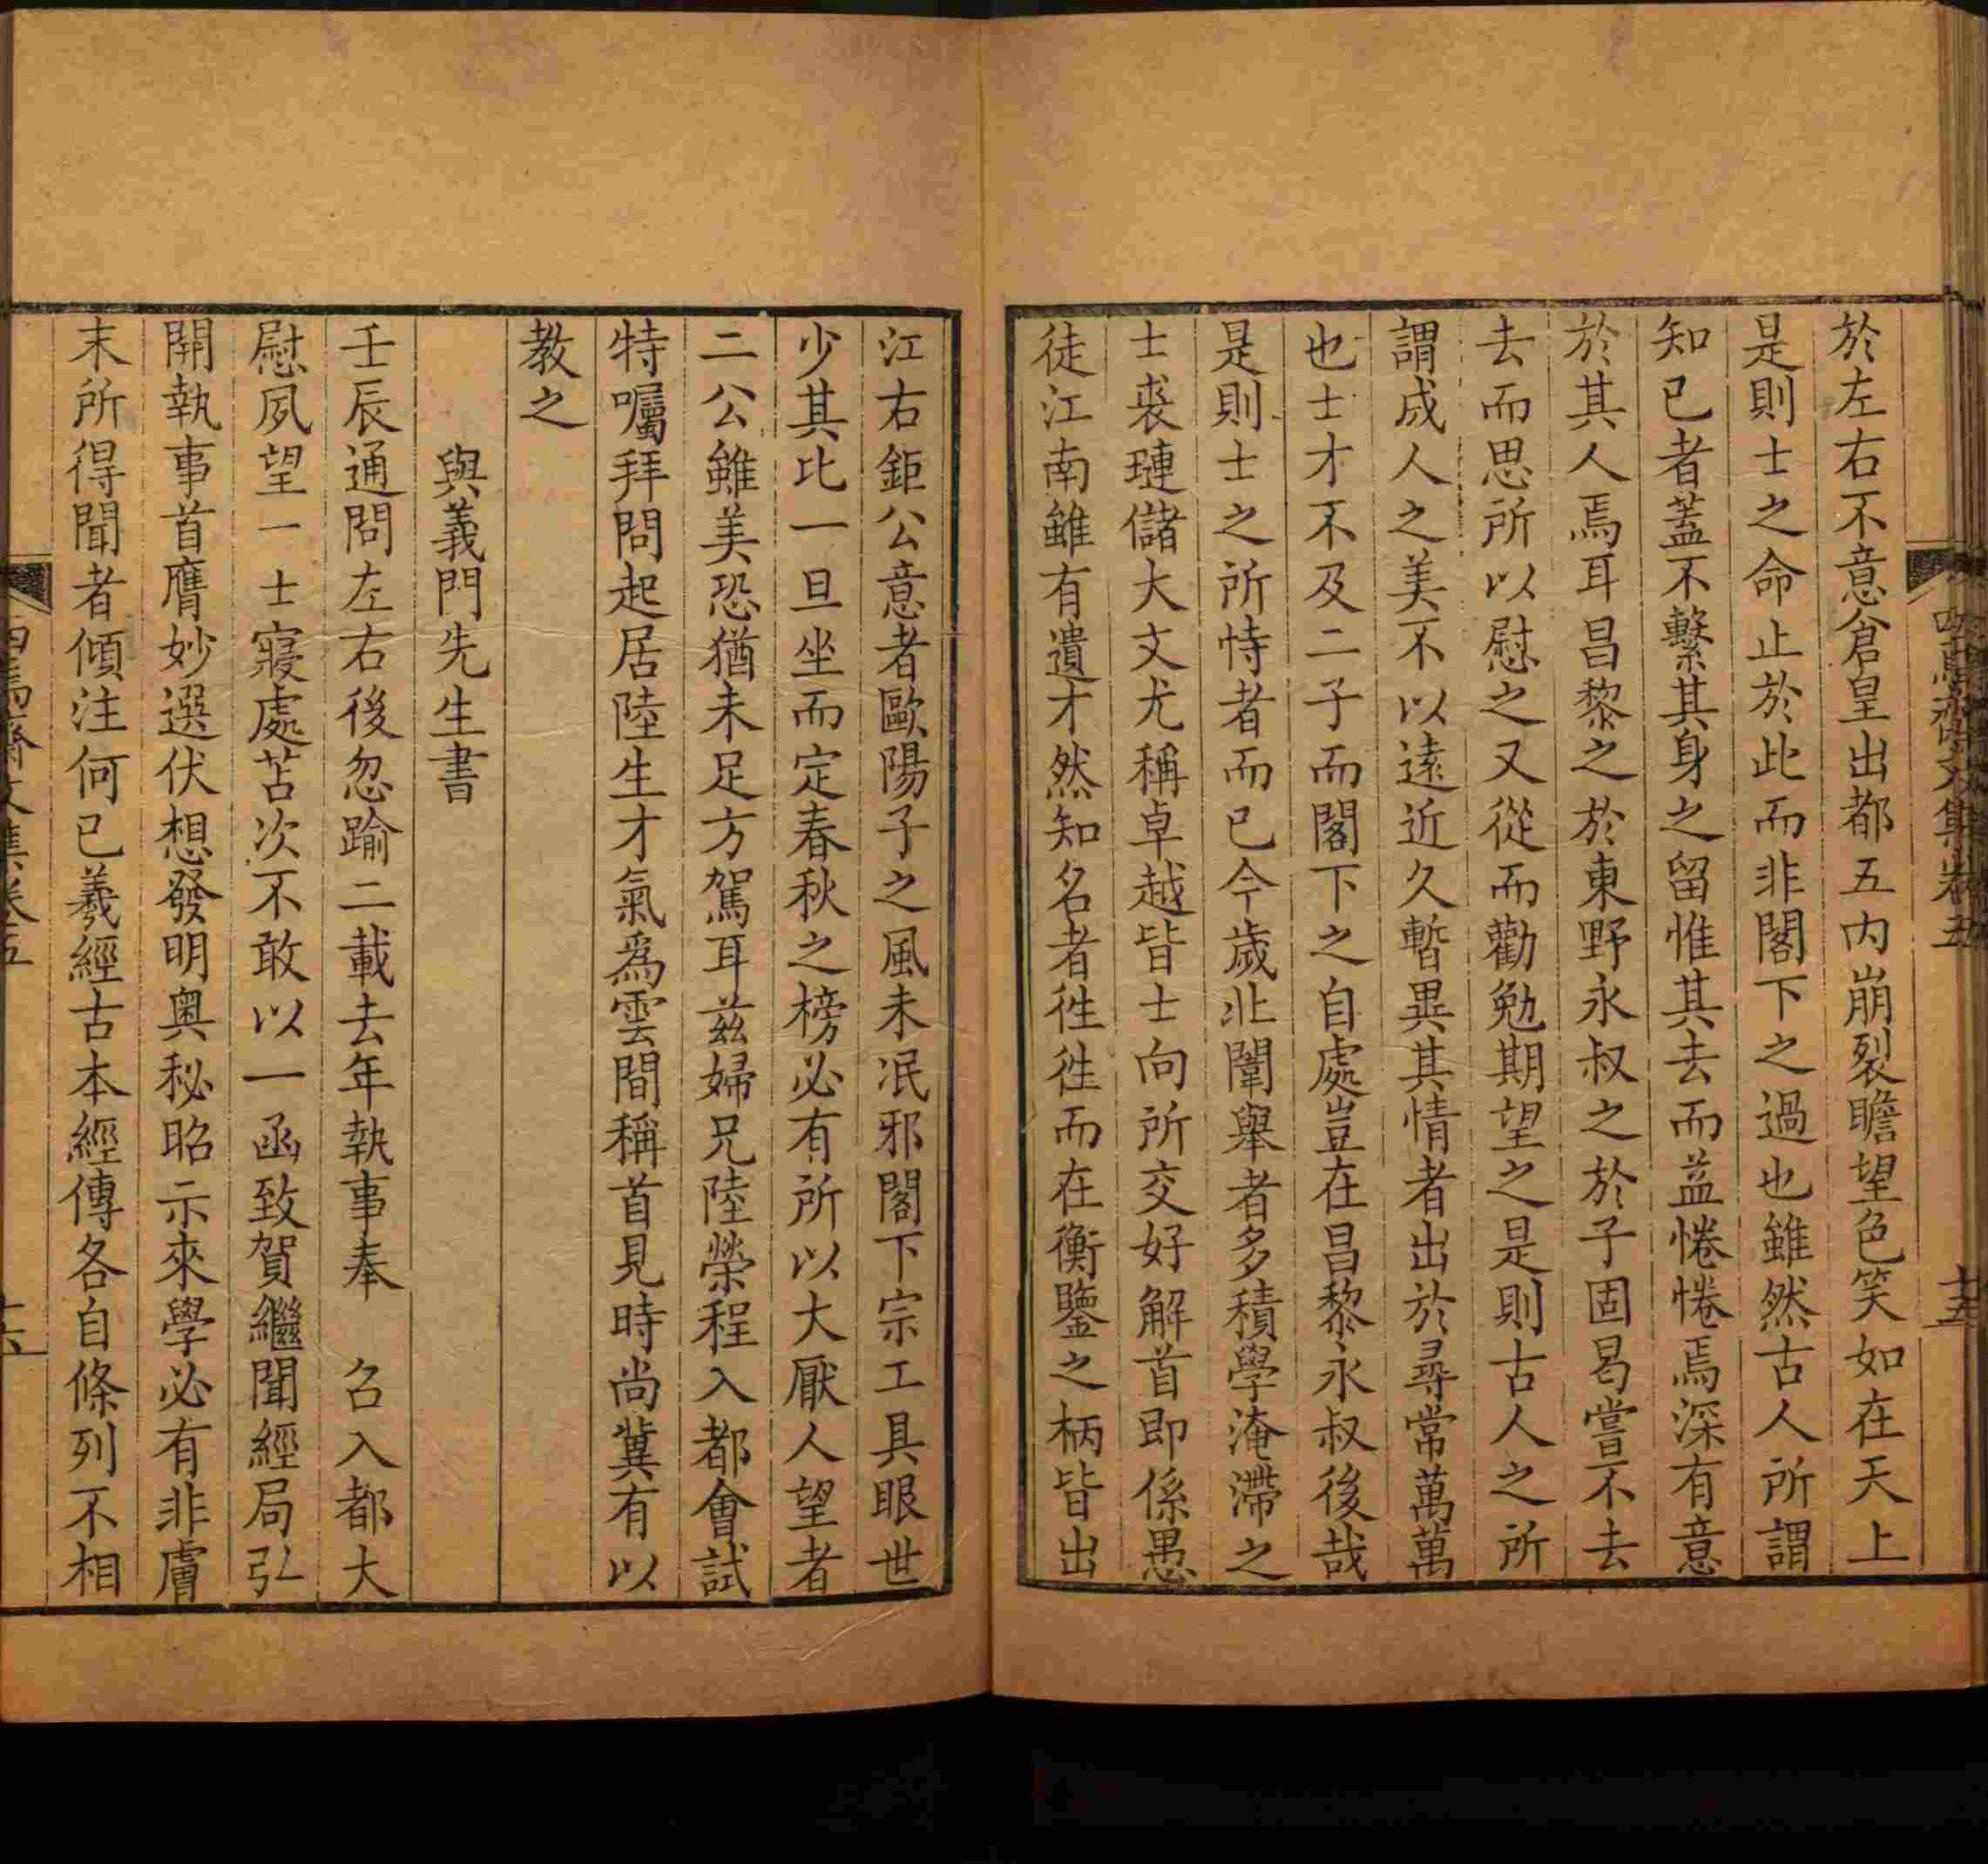 於左右不意倉皇出都五内崩裂瞻望色笑如在天上
是則士之命止於此而非閣下之過也雖然古人所謂
知已者蓋不繫其身之留惟其去而益惓惓焉深有意
於其人焉耳昌黎之於東野永叔之於子固曷嘗不去
去而思所以慰之又從而勸勉期望之是則古人之所
謂成人之美不以遠近久暫異其情者出於尋常萬萬
也士才不及二子而閣下之自處豈在昌黎永叔後哉
是則士之所恃者而已今歲北闈舉者多積學淹滯之
士裘璉儲大文尤稱卓越皆士向所交好解首即係愚
徒江南雖有遺才然知名者徃徃而在衡鑒之柄皆出
江右鉅公意者歐陽子之風未泯邪閣下宗工具眼世
少其比一旦坐而定春秋之榜必有所以大厭人望者
二公雖美恐猶未足方駕耳兹婦兄陸榮程入都會試
特囑拜問起居陸生才氣爲雲間稱首見時尚冀有以
教之
與義門先生書
壬辰通問左右後忽踰二載去年執事奉 召入都大
慰夙望一士寢處苫次不敢以一函致賀繼聞經局弘
開執事首膺妙選伏想發明奥秘昭示來學必有非膚
末所得聞者傾注何已羲經古本經傳各自條列不相
文集卷五
十六